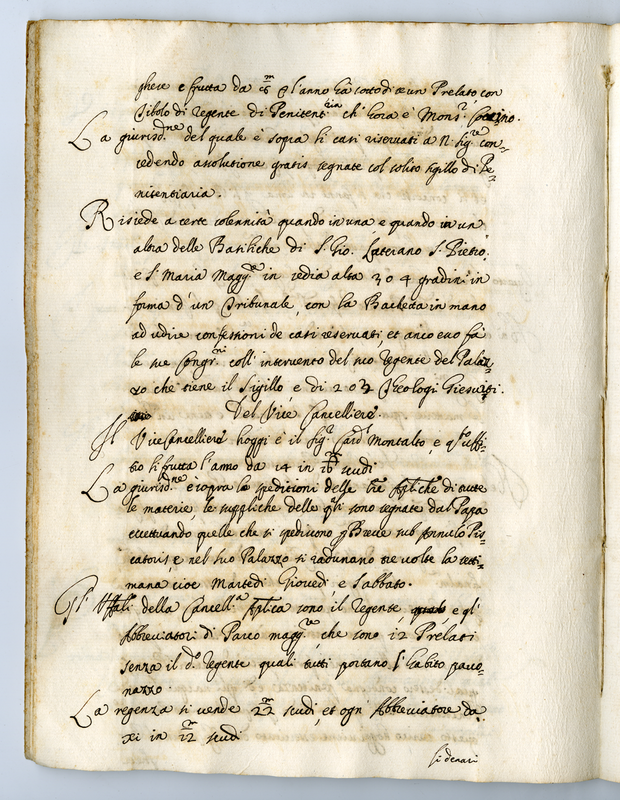 ghere e frutta da 6 m l'anno hà sotto di se un Prelato con
titolo di Regente di Penitent.ria ch'hora è Mons.r
La giurisd.ne del quale è sopra li casi riservati a N. Sig.re con=
cedendo assolutione gratis segnate col solito sigillo di Pe=
nitentiaria.
Risiede a certe solennità quando in una, e quando in un
altra delle Basiliche di S. Gio. Laterano S. Pietro
e S. Maria Magg.re in sedia alta 3 o 4 gradini in
forma d'un Tribunale, con la Bachetta in mano
ad udire confessioni de casi reservati et anco esso fà
le sue Congr.ni coll'intervento del suo Regente del Palaz=
zo che tiene il Sigillo e di 2 o 3 Theologi Giesuiti.
Del Vice Cancelliere.
Il ViceCancelliere hoggi è il Sig.r Card. Montalto, e q.sto uffi=
tio li frutta l'anno da 14 in 16 m scudi
La giurisd.ne e sopra le speditioni delle lre Apl.iche di tutte
le materie, le suppliche delle q.li sono segnate dal Papa
eccettuando quelle che si spediscono p Breve sub Annulo Pis=
catoris e nel suo Palazzo si radunano tre volte la setti=
mana cioe Martedì Giovedì e Sabbato.
Gl' Uff.ali della Cancell.a Aplica sono, il Regente, e gl'
Abbreviatori di Parco magg.re, che sono 12 Prelati
senza il d.o Regente quali tutti portano l'habito pavo=
nazzo.
La regenza si vende 22 m scudi, et ogni Abbreviatore da
xi in 12 m scudi
li denari